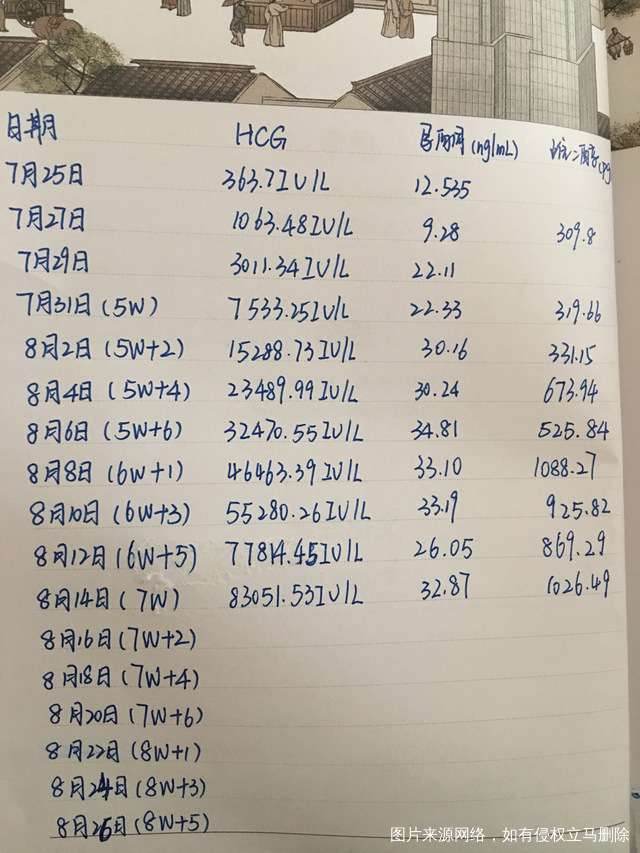 日期 HCG 孕酮(ng/mL) 雌二醇(pg
7月25日 363.7IU/L 12.535
7月27日 1063.48IU/L 9.28 309.8
7月29日 3011.34IU/L 22.11
7月31日(5W) 7533.25IU/L 22.33 319.66
8月2日(5W+2) 15288.73IU/L 30.16 331.15
8月4日(5W+4) 23489.99IU/L 30.24 673.94
8月6日(5W+6) 32470.55IU/L 34.81 525.84
8月8日(6W+1) 46463.39IU/L 33.10 1088.27
8月10日(6W+3) 55280.26IU/L 33.19 925.82
8月12日(6W+5) 77814.45IU/L 26.05 869.29
8月14日(7W) 83051.53IU/L 32.87 1026.49
8月16日(7W+2)
8月18日(7W+4)
8月20日(7W+6)
8月22日(8W+1)
8月24日(8W+3)
8月26日(8W+5)
图片来源网络，如有侵权立马删除